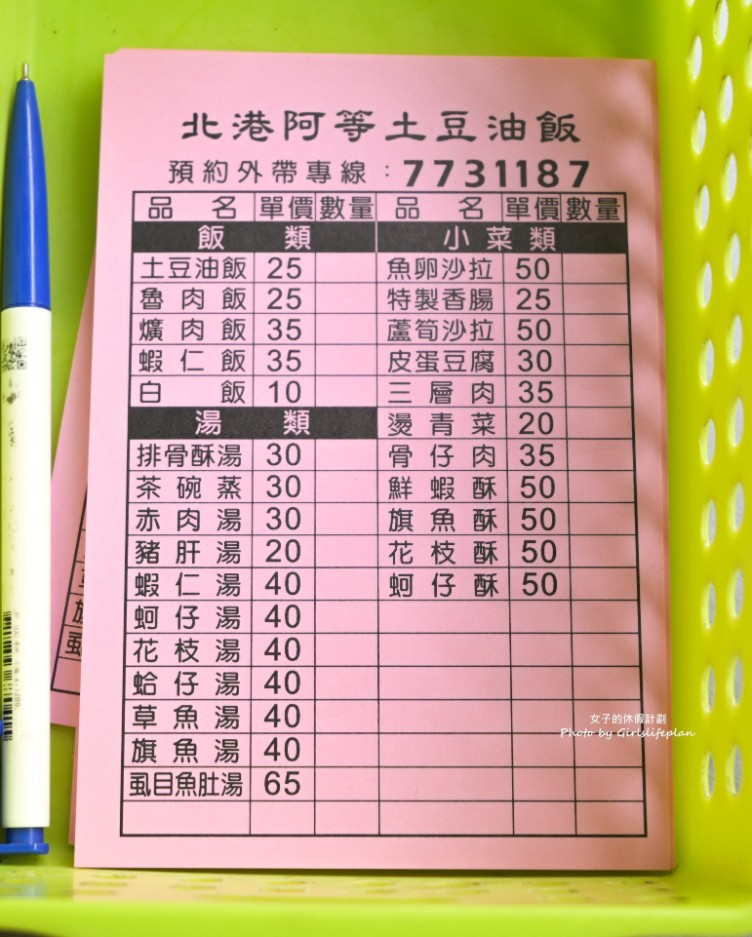 北港阿等土豆油飯
預約外帶專線：7731187
品名 單價 數量 品名 單價 數量
飯類 小菜類
土豆油飯 25 魚卵沙拉 50
魯肉飯 25 特製香腸 25
爌肉飯 35 蘆筍沙拉 50
蝦仁飯 35 皮蛋豆腐 30
白飯 10 三層肉 35
湯類 燙青菜 20
排骨酥湯 30 骨仔肉 35
茶碗蒸 30 鮮蝦酥 50
赤肉湯 30 旗魚酥 50
豬肝湯 20 花枝酥 50
蝦仁湯 40 蚵仔酥 50
蚵仔湯 40
花枝湯 40
蛤仔湯 40
草魚湯 40
旗魚湯 40
虱目魚肚湯 65
女子的休假計劃
Photo by Girlslifeplan